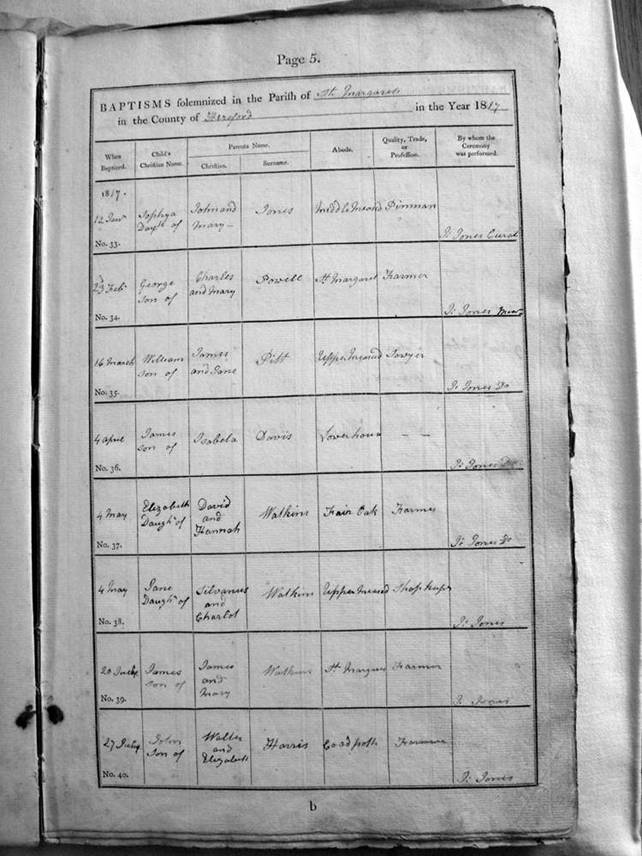 Page 5.
BAPTISMS solemnized in the Parish of St. Margarets
in the County of Hereford in the Year 1817
When Baptized. Child's Christian Name. Parents Name. Abode. Quality, Trade, or Profession. By whom the Ceremony was performed.
Christian. Surname.
1817.
12 Jany Sophya John and Jones
Daugh of Mary
No. 33. Js Jones Curat
23d Feby George Charles Powell St. Margaret Farmer
Son of and Mary
No. 34. Js Jones
16 March William James Pitt Sawyer
Son of and Jane
No. 35. Js Jones Do
4 April James Isabela Davis — —
Son of
No. 36. Js Jones Do
4 May Elizabeth David Watkins Fair Oak Farmer
Daugh of and
No. 37. Hannah Js Jones Do
4 May Jane Silvanus Watkins
Daugh of and
No. 38. Charlot Js Jones
20 July James James Watkins St Margaret Farmer
Son of and
No. 39. Mary Js Jones
27 July John Walter Harris Farmer
Son of and
No. 40. Elizabeth Js Jones
b